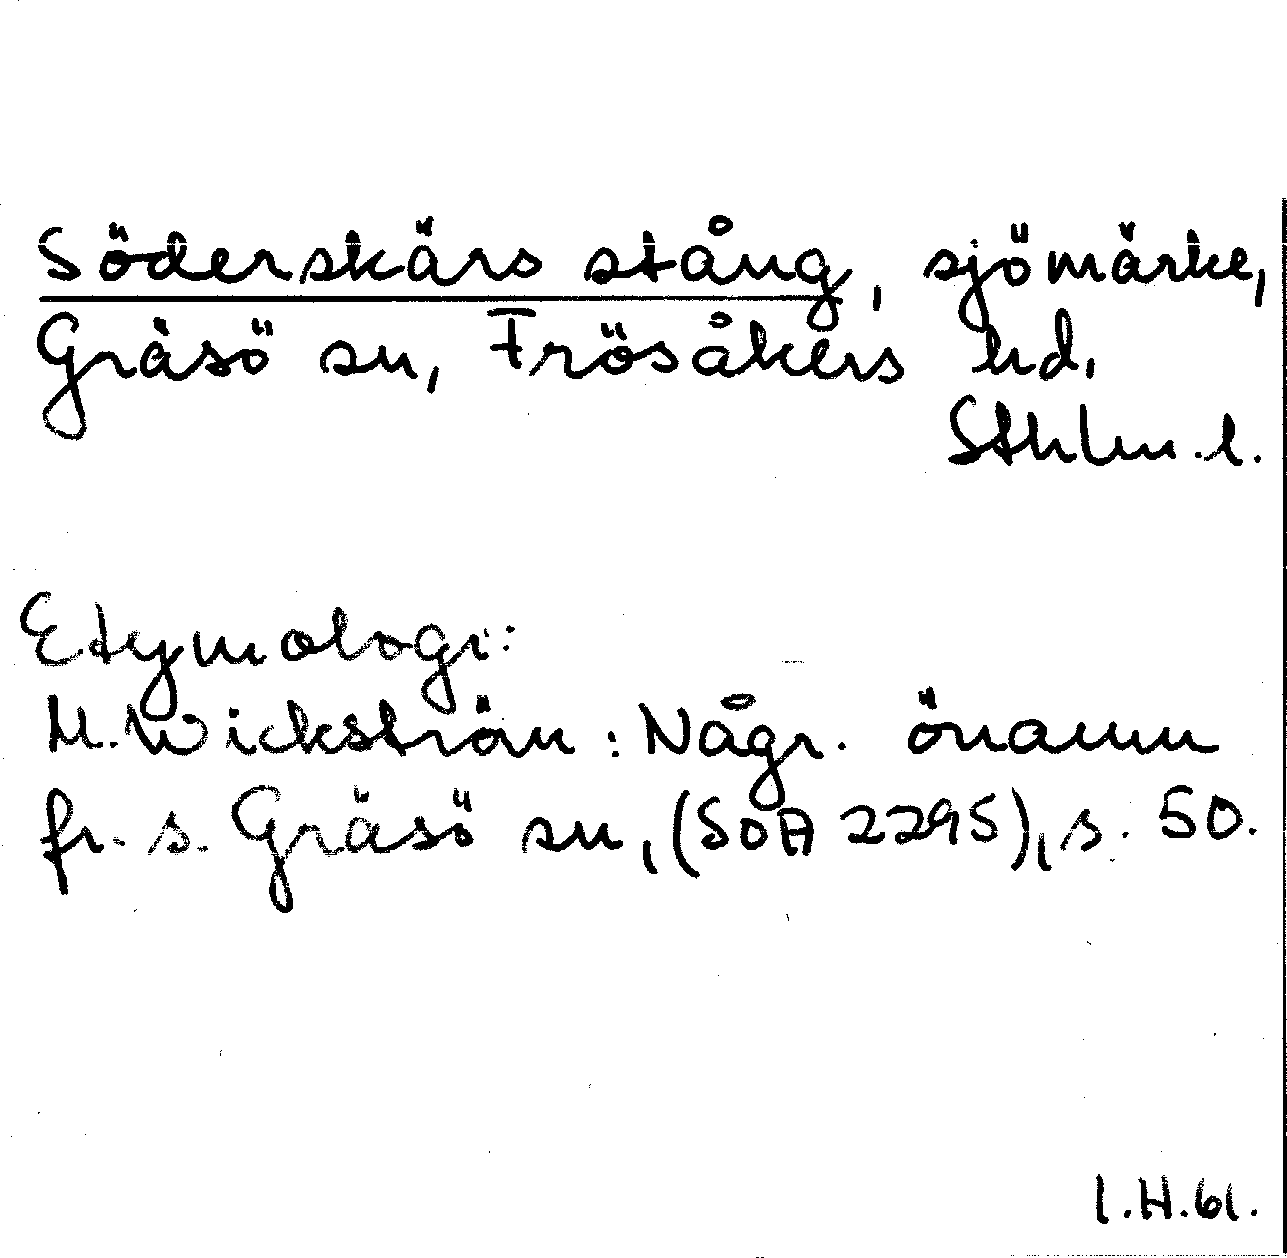 Söderskärs stång, sjömärke,
Gräsö sn, Frösåkers hd,
Sthlm.l.
Etymologi:
M. Wickström: Någr. önamn
fr. s. Gräsö sn, (SOA 2295), s. 50.
I.H.61.